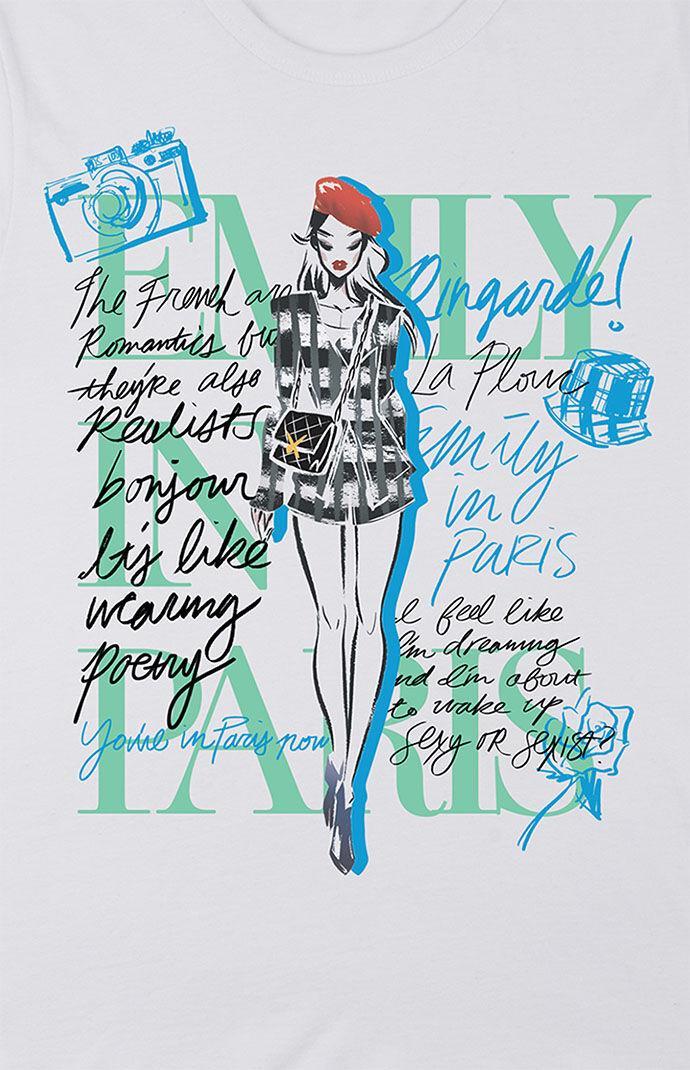 EMILY
IN
PARIS
The French are
Romantics bu
they're also
Realists
bonjour
It's like
wearing
Poetry
You're in Paris now
Ringarde!
La Plouc
Emily
in
PARIS
I feel like
I'm dreaming
nd I'm about
to wake up
Sexy OR Sexist?